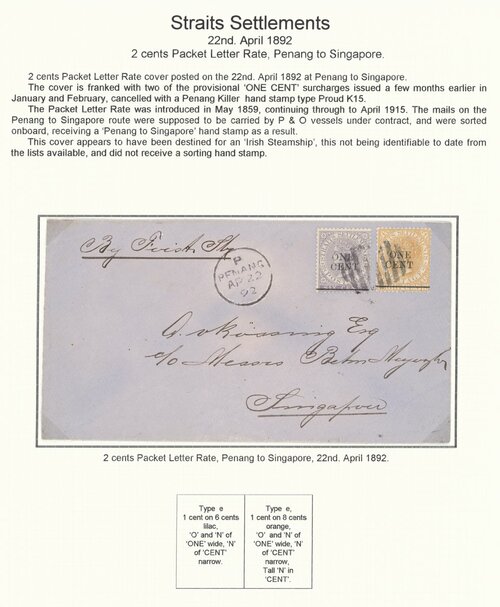 Straits Settlements
22nd. April 1892
2 cents Packet Letter Rate, Penang to Singapore.
2 cents Packet Letter Rate cover posted on the 22nd. April 1892 at Penang to Singapore.
The cover is franked with two of the provisional 'ONE CENT' surcharges issued a few months earlier in
January and February, cancelled with a Penang Killer hand stamp type Proud K15.
The Packet Letter Rate was introduced in May 1859, continuing through to April 1915. The mails on the
Penang to Singapore route were supposed to be carried by P & O vessels under contract, and were sorted
onboard, receiving a 'Penang to Singapore' hand stamp as a result.
This cover appears to have been destined for an 'Irish Steamship', this not being identifiable to date from
the lists available, and did not receive a sorting hand stamp.
By
P
PENANG
AP 22
92
ONE
CENT
ONE
CENT
Esq
c/o Messrs Behn Meyer
Singapore
2 cents Packet Letter Rate, Penang to Singapore, 22nd. April 1892.
Type e
1 cent on 6 cents
lilac,
'O' and 'N' of
'ONE' wide, 'N'
of 'CENT'
narrow.
Type e,
1 cent on 8 cents
orange,
'O' and 'N' of
'ONE' wide, 'N'
of 'CENT'
narrow,
Tall 'N' in
'CENT'.